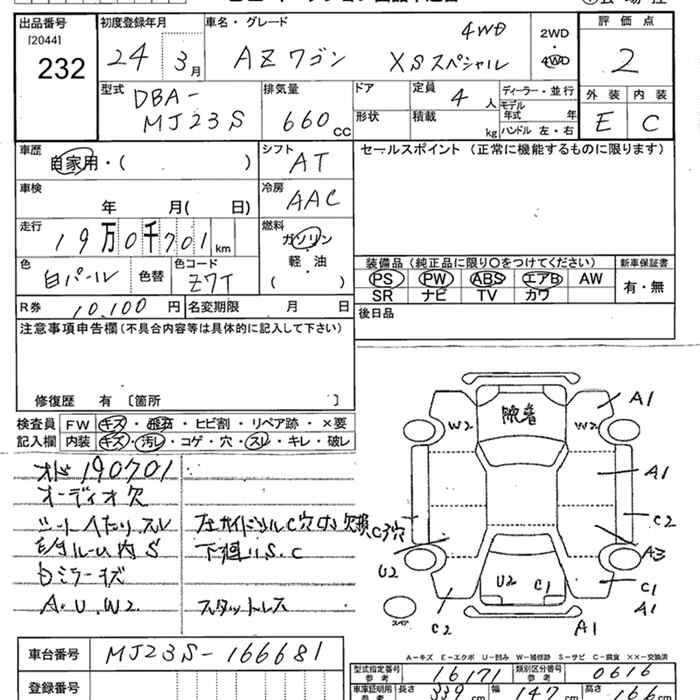 出品番号 初度登録年月 車名・グレード 評価点
[2044]
232
24 3月
AZワゴン XSスペシャル 4WD
2WD
4WD
2
型式 排気量 ドア 定員 ディーラー・並行 外装 内装
DBA-
MJ23S
660 CC
4 人
モデル年式 年
E C
形状 積載 kg ハンドル 左・右
車歴 シフト セールスポイント (正常に機能するものに限ります)
自家用・( )
AT
車検 冷房
年 月( 日)
AAC
走行 燃料
19万0千701km
ガソリン
軽・油
( )
装備品 (純正品に限り〇をつけてください) 新車保証書
色 色替 色コード
白パール Z7T
PS PW ABS エアB AW
SR ナビ TV カワ
有・無
R券 10,100 円 名変期限 月 日
後日品
注意事項申告欄(不具合内容等は具体的に記入して下さい)
修復歴 有 〔箇所 〕
検査員 FW キズ・飛石・ヒビ割・リペア跡・×要
記入欄 内装 キズ・汚レ・コゲ・穴・スレ・キレ・破レ
オド190701
オーディオ欠
シートヘたり スレ
内S
下廻りS.C
ミラーキズ
A.U.W2.
スタットレス
W2
W2
A1
A1
C2
A3
C1
A1
A1
C2
U2
U2
C1
スペア
A-キズ E-エクボ U-凹み W-補修跡 S-サビ C-腐食 ××-交換済
車台番号 MJ23S-166681
登録番号
型式指定番号 参考 16171 類別区分番号 参考 0616
車庫証明用 参考 長さ 339 cm 幅 147 cm 高さ